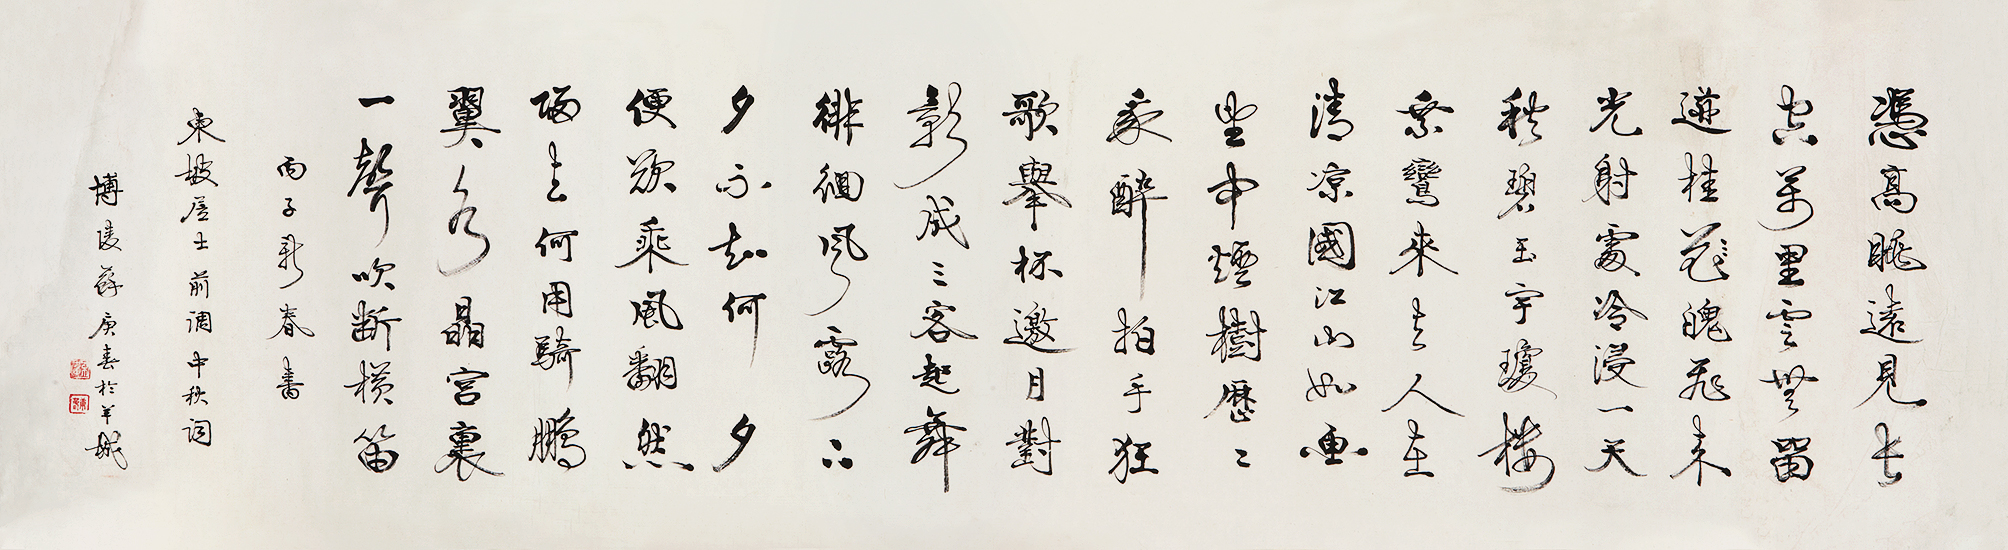 憑高眺遠見長
空萬里雲無留
迹桂花魄飛来
光射處冷浸一天
秋碧玉宇瓊樓
乘鸞來去人在
清凉國江山如画
望中煙樹歷〻
我醉拍手狂
歌舉杯邀月對
影成三客起舞
徘徊風露下
夕不知何夕
便欲乘風翻然
歸去何用騎鵬
翼水晶宮裏
一聲吹断橫笛
丙子新春書
東坡居士前調中秋詞
博陵蘇庚春於羊城